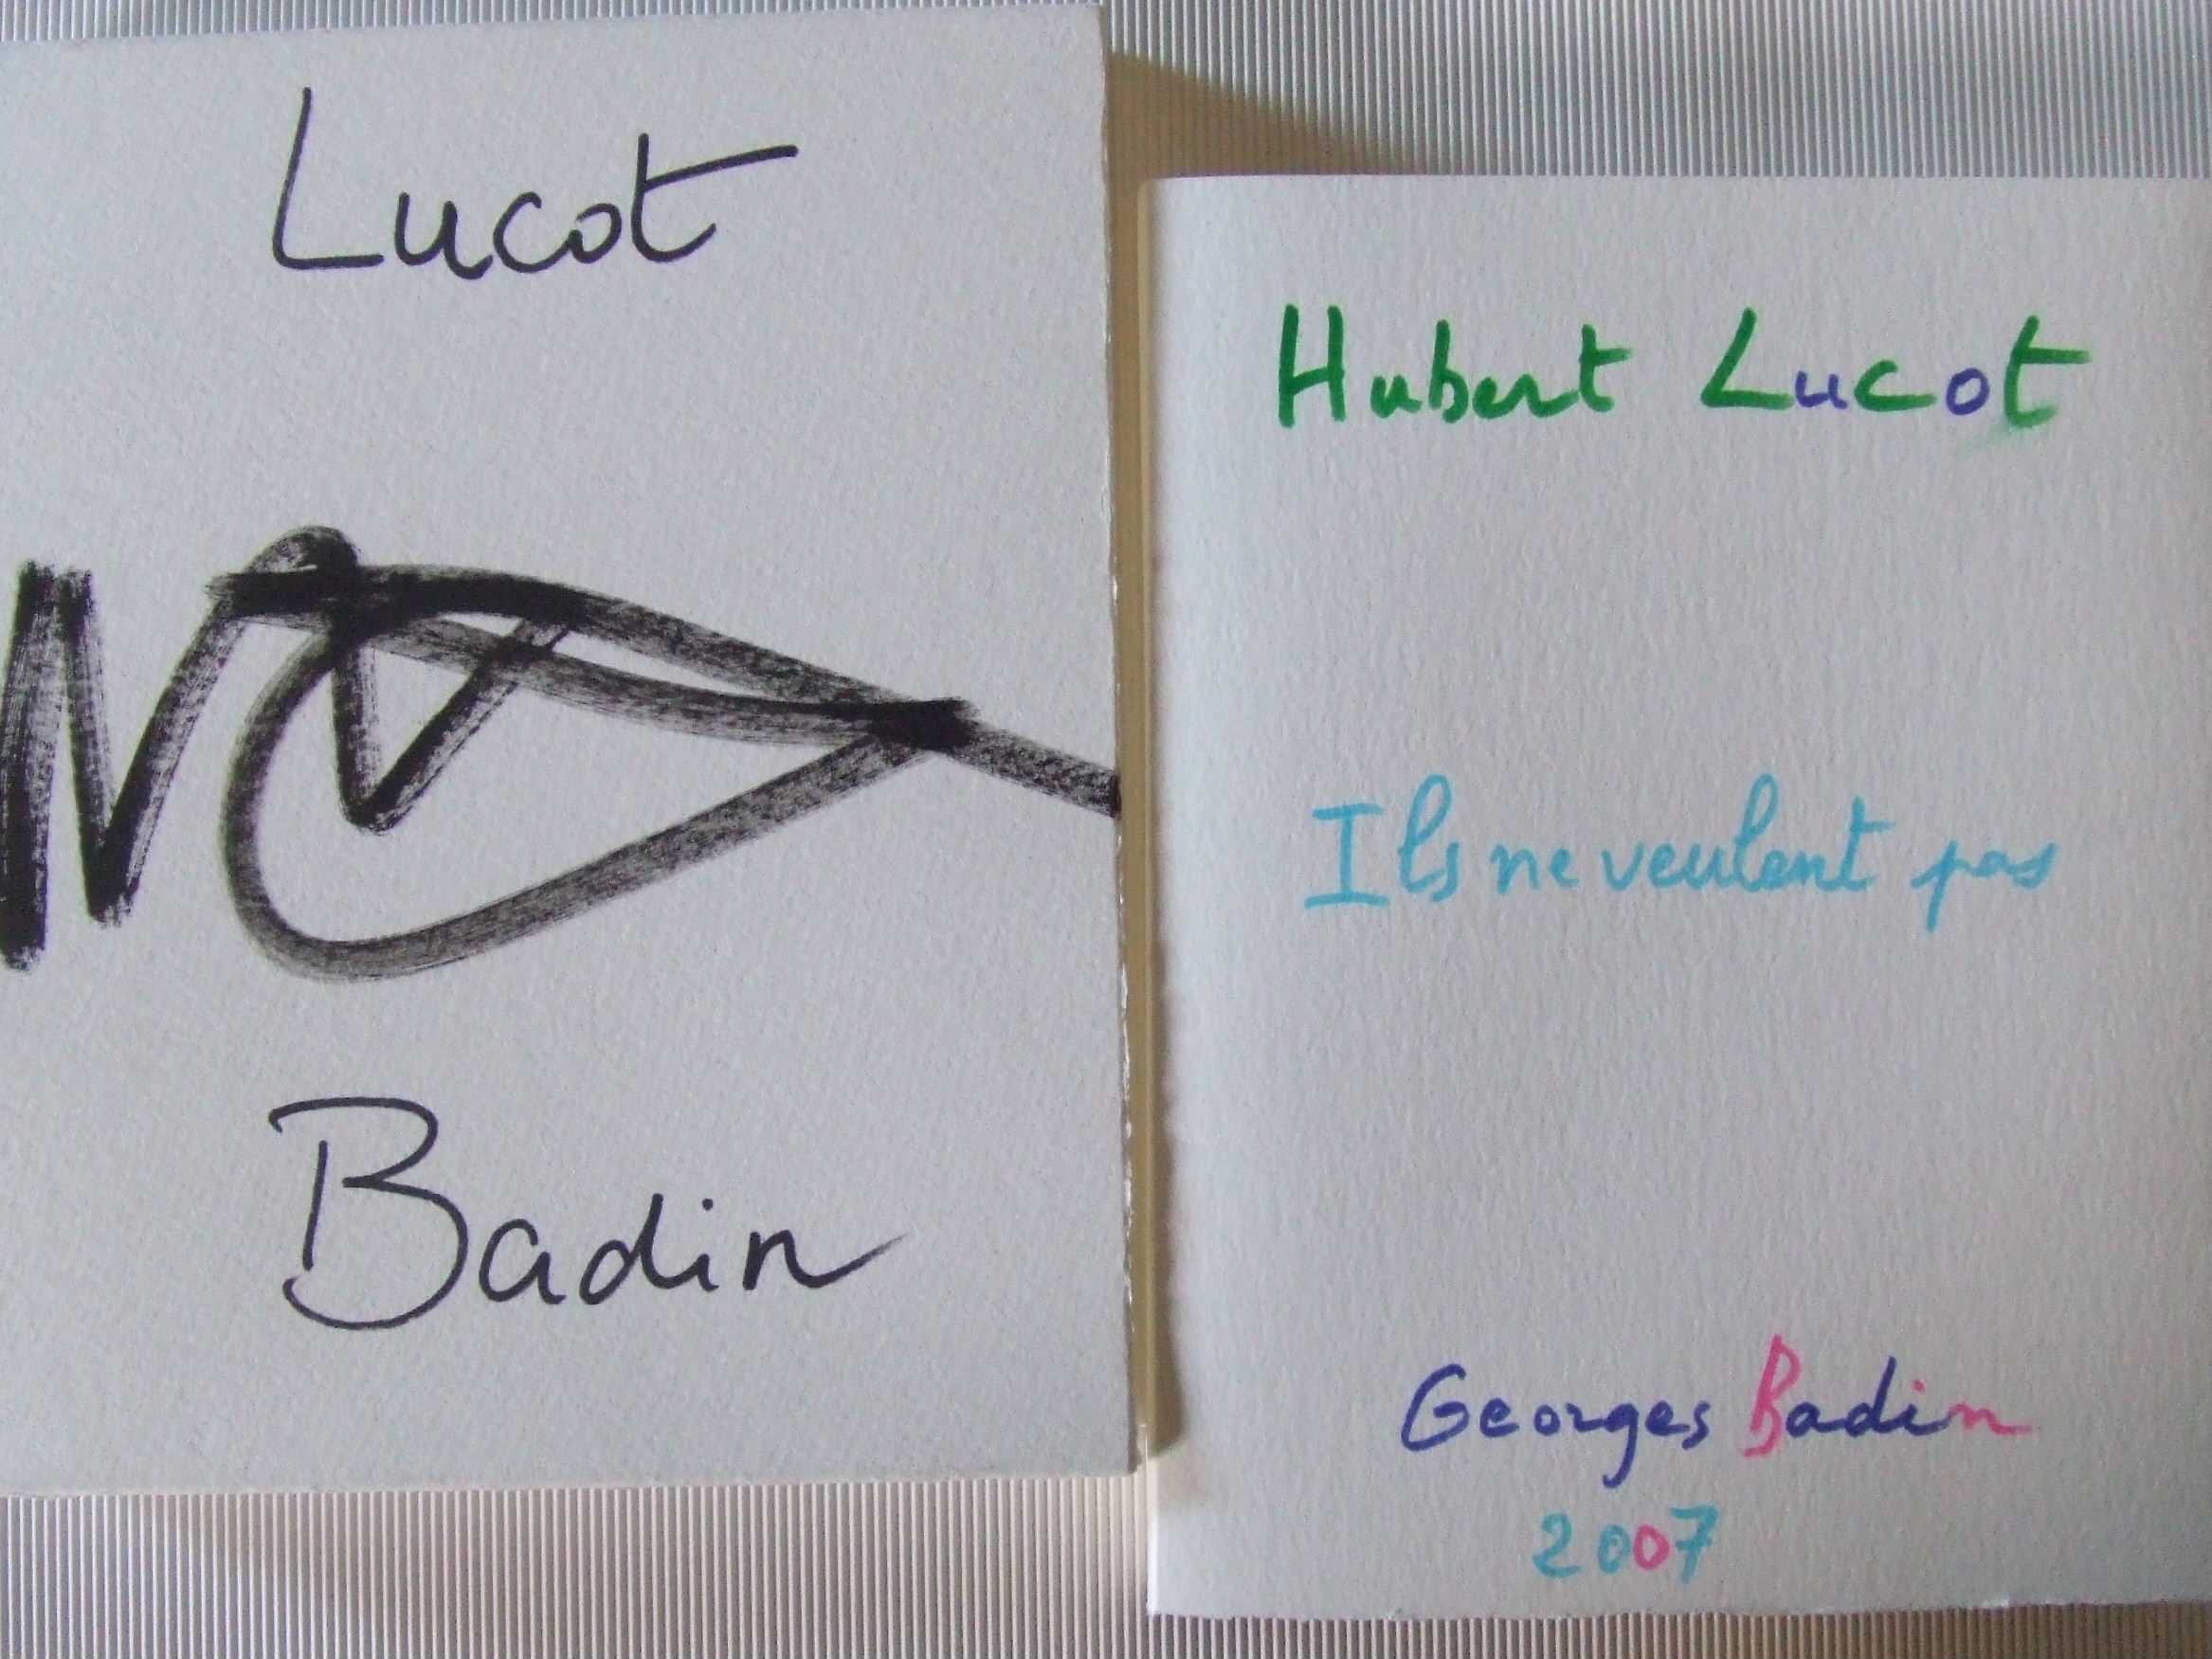 Lucot
Badin
Hubert Lucot
Ils ne veulent pas
Georges Badin
2007